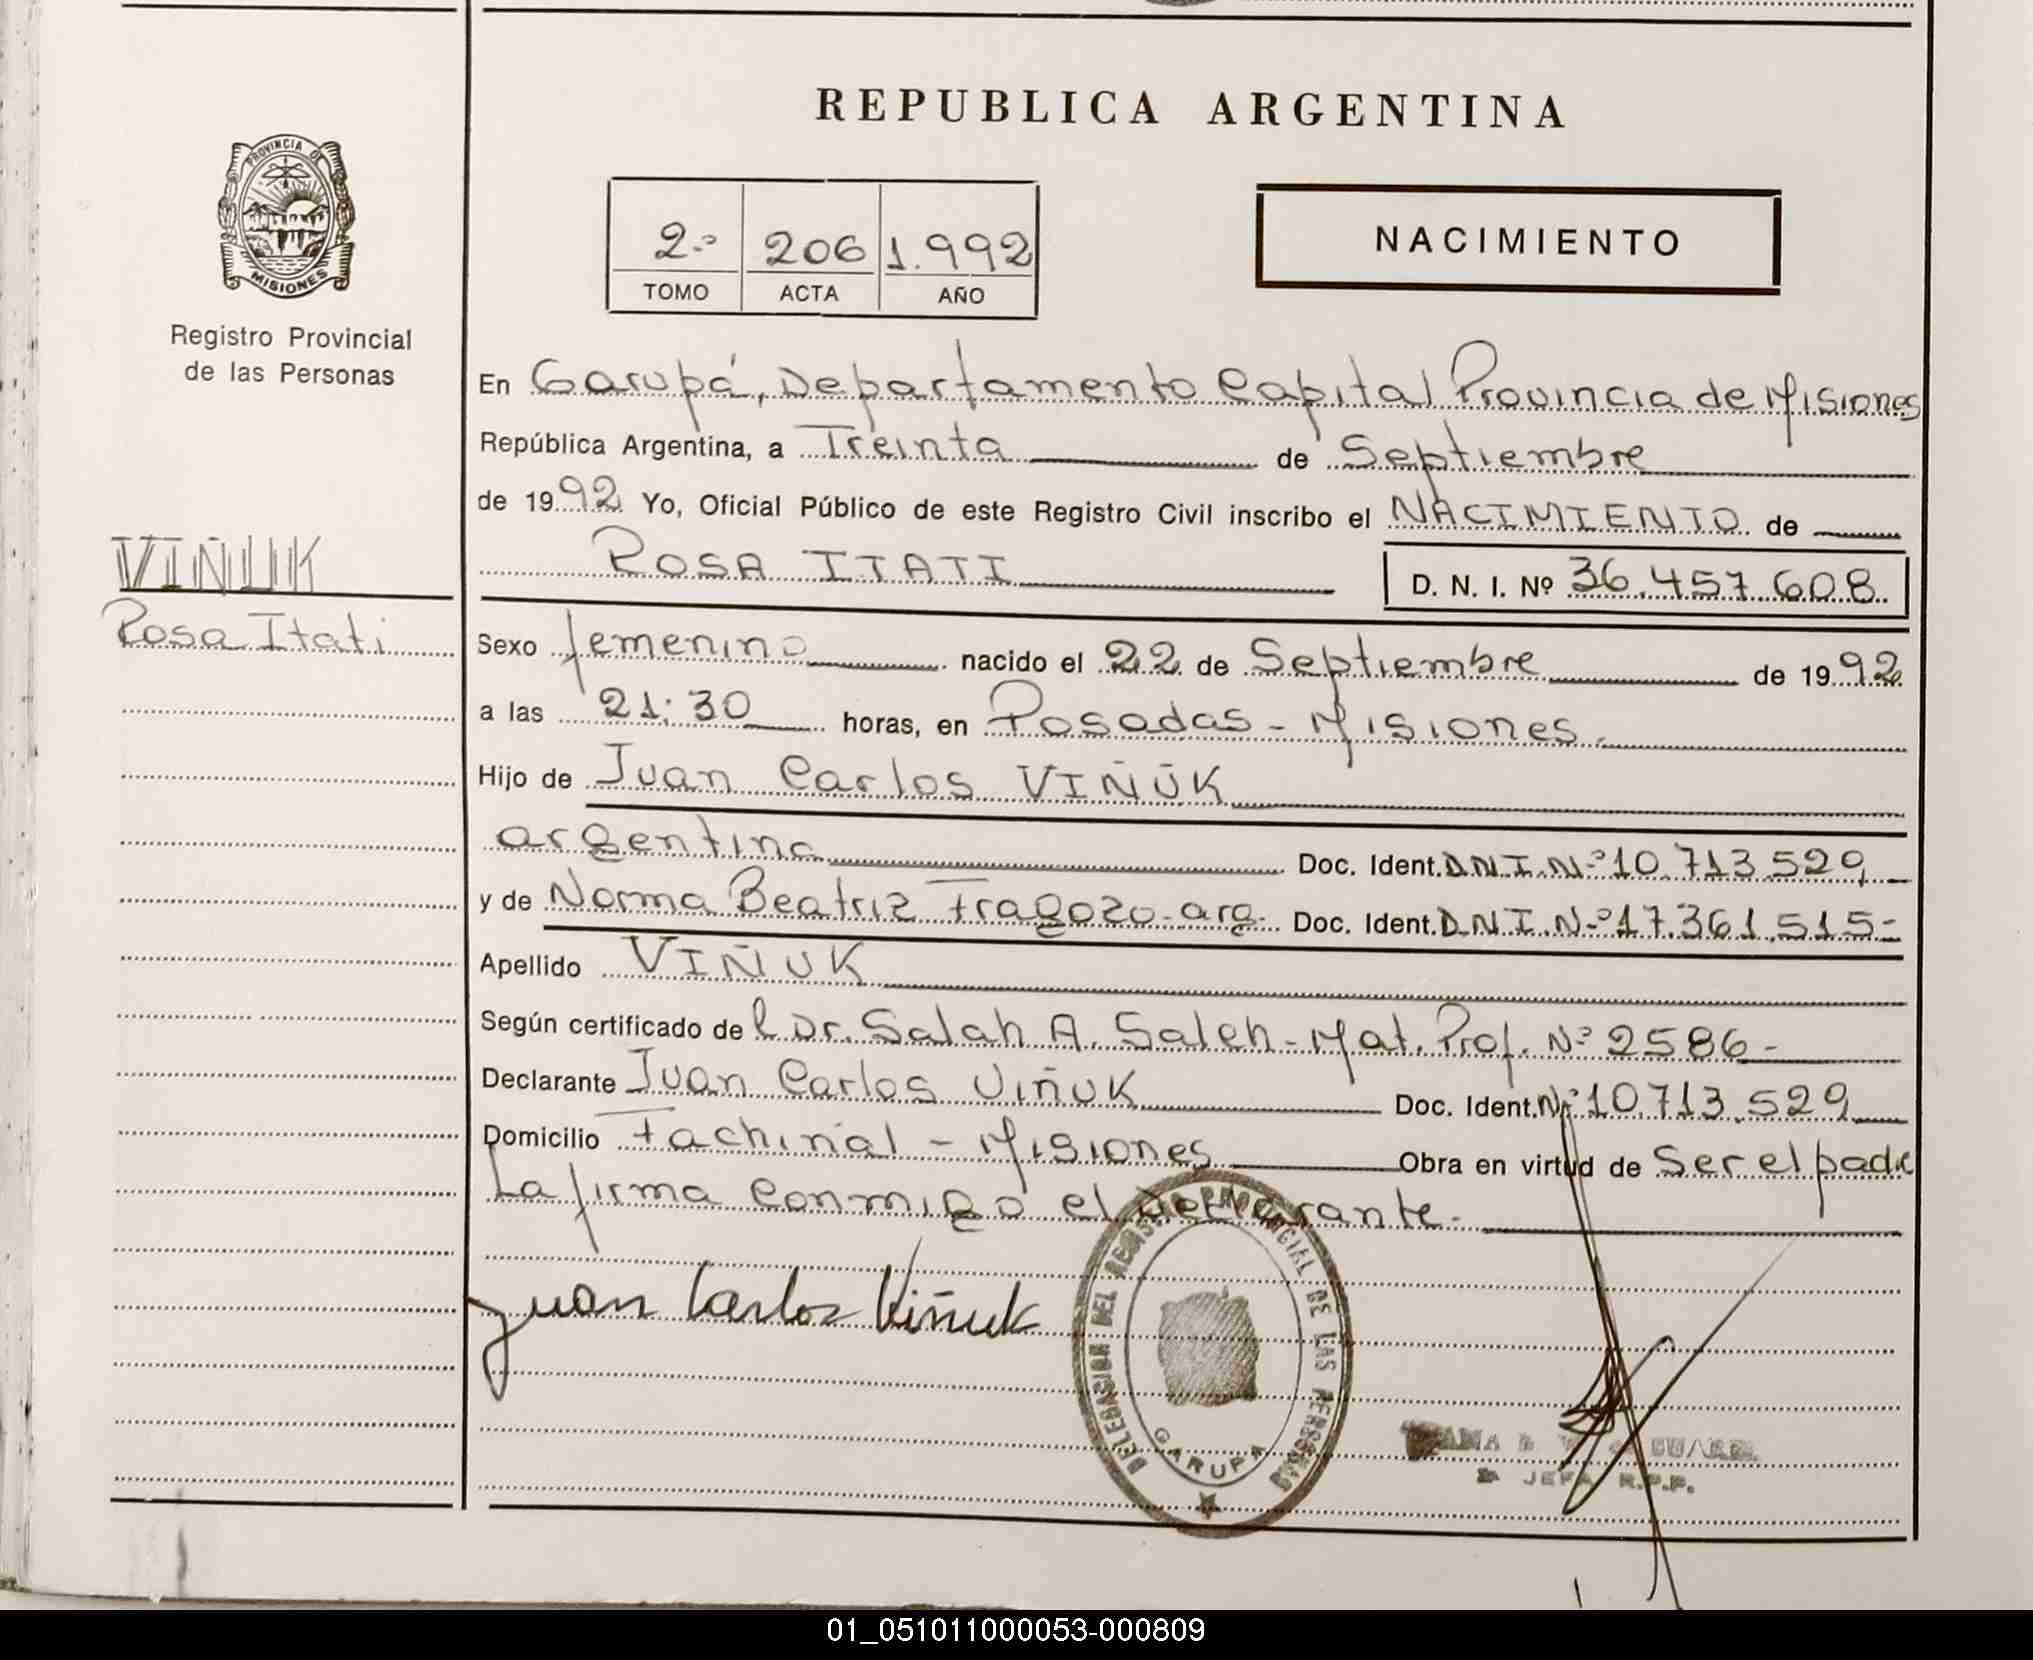 REPUBLICA ARGENTINA
PROVINCIA DE
MISIONES
Registro Provincial
de las Personas
2.º 206 1.992
TOMO ACTA AÑO
NACIMIENTO
En Garupá, Departamento Capital Provincia de Misiones
República Argentina, a Treinta de Septiembre
de 1992 Yo, Oficial Público de este Registro Civil inscribo el NACIMIENTO de
ROSA ITATI D. N. I. Nº 36.457.608
VIÑUK
Rosa Itati
Sexo femenino nacido el 22 de Septiembre de 1992
a las 21:30 horas, en Posadas - Misiones.
Hijo de Juan Carlos VIÑUK
argentina Doc. Ident. D.N.I. Nº 10.713.529
y de Norma Beatriz Fragozo - arg. Doc. Ident. D.N.I. Nº 17.361.515-
Apellido VIÑUK
Según certificado de Dr. Salah A. Saleh - Mat. Prof. Nº 2586-
Declarante Juan Carlos Viñuk Doc. Ident. Nº 10.713.529
Domicilio Fachinal - Misiones Obra en virtud de Ser el padre
La firma conmigo el Declarante-
Juan Carlos Viñuk
DELEGASION DEL REGISTRO PROVINCIAL DE LAS PERSONAS
GARUPA
JEFA R.P.P.
01_051011000053-000809